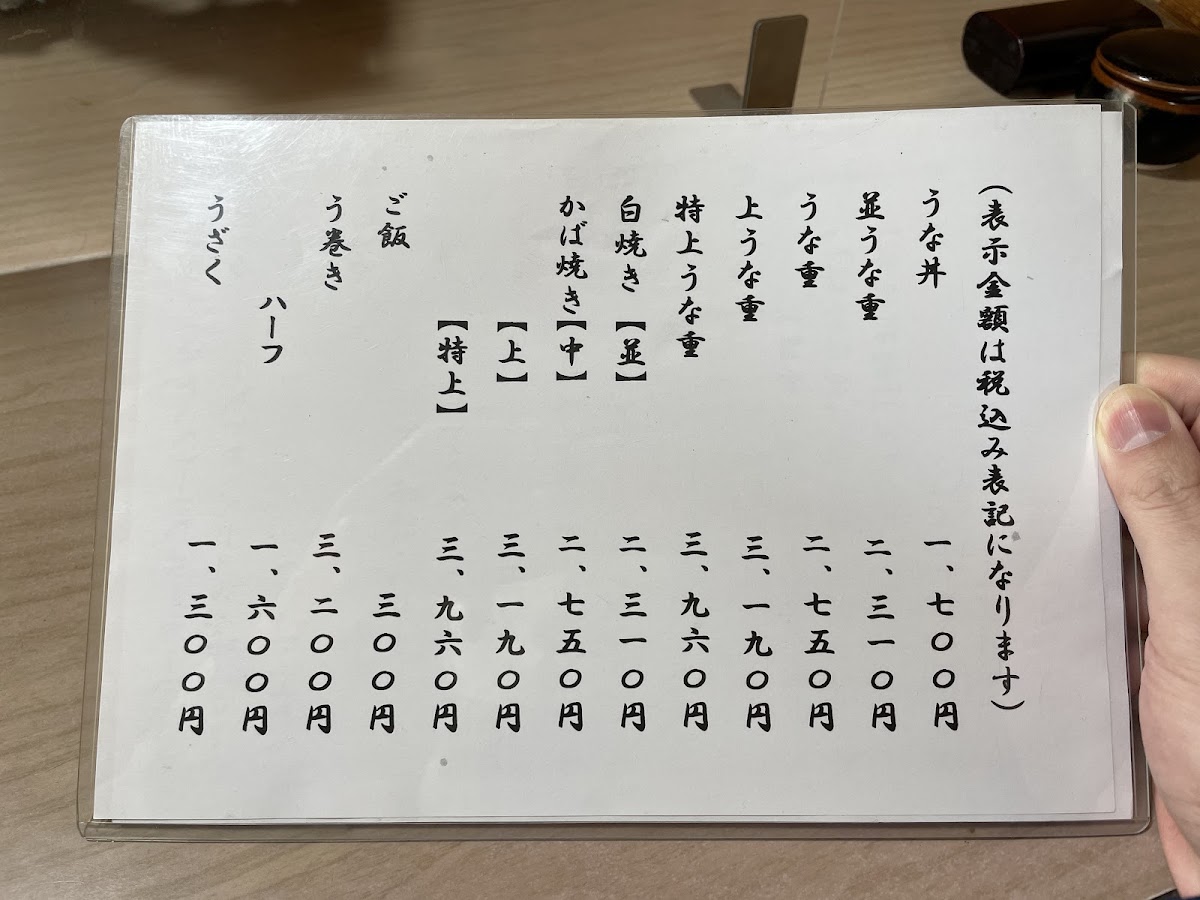 (表示金額は税込み表記になります)
うな丼 一、七〇〇円
並うな重 二、三一〇円
うな重 二、七五〇円
上うな重 三、一九〇円
特上うな重 三、九六〇円
白焼き【並】 二、三一〇円
かば焼き【中】 二、七五〇円
【上】 三、一九〇円
【特上】 三、九六〇円
ご飯 三〇〇円
う巻き 三、二〇〇円
ハーフ 一、六〇〇円
うざく 一、三〇〇円